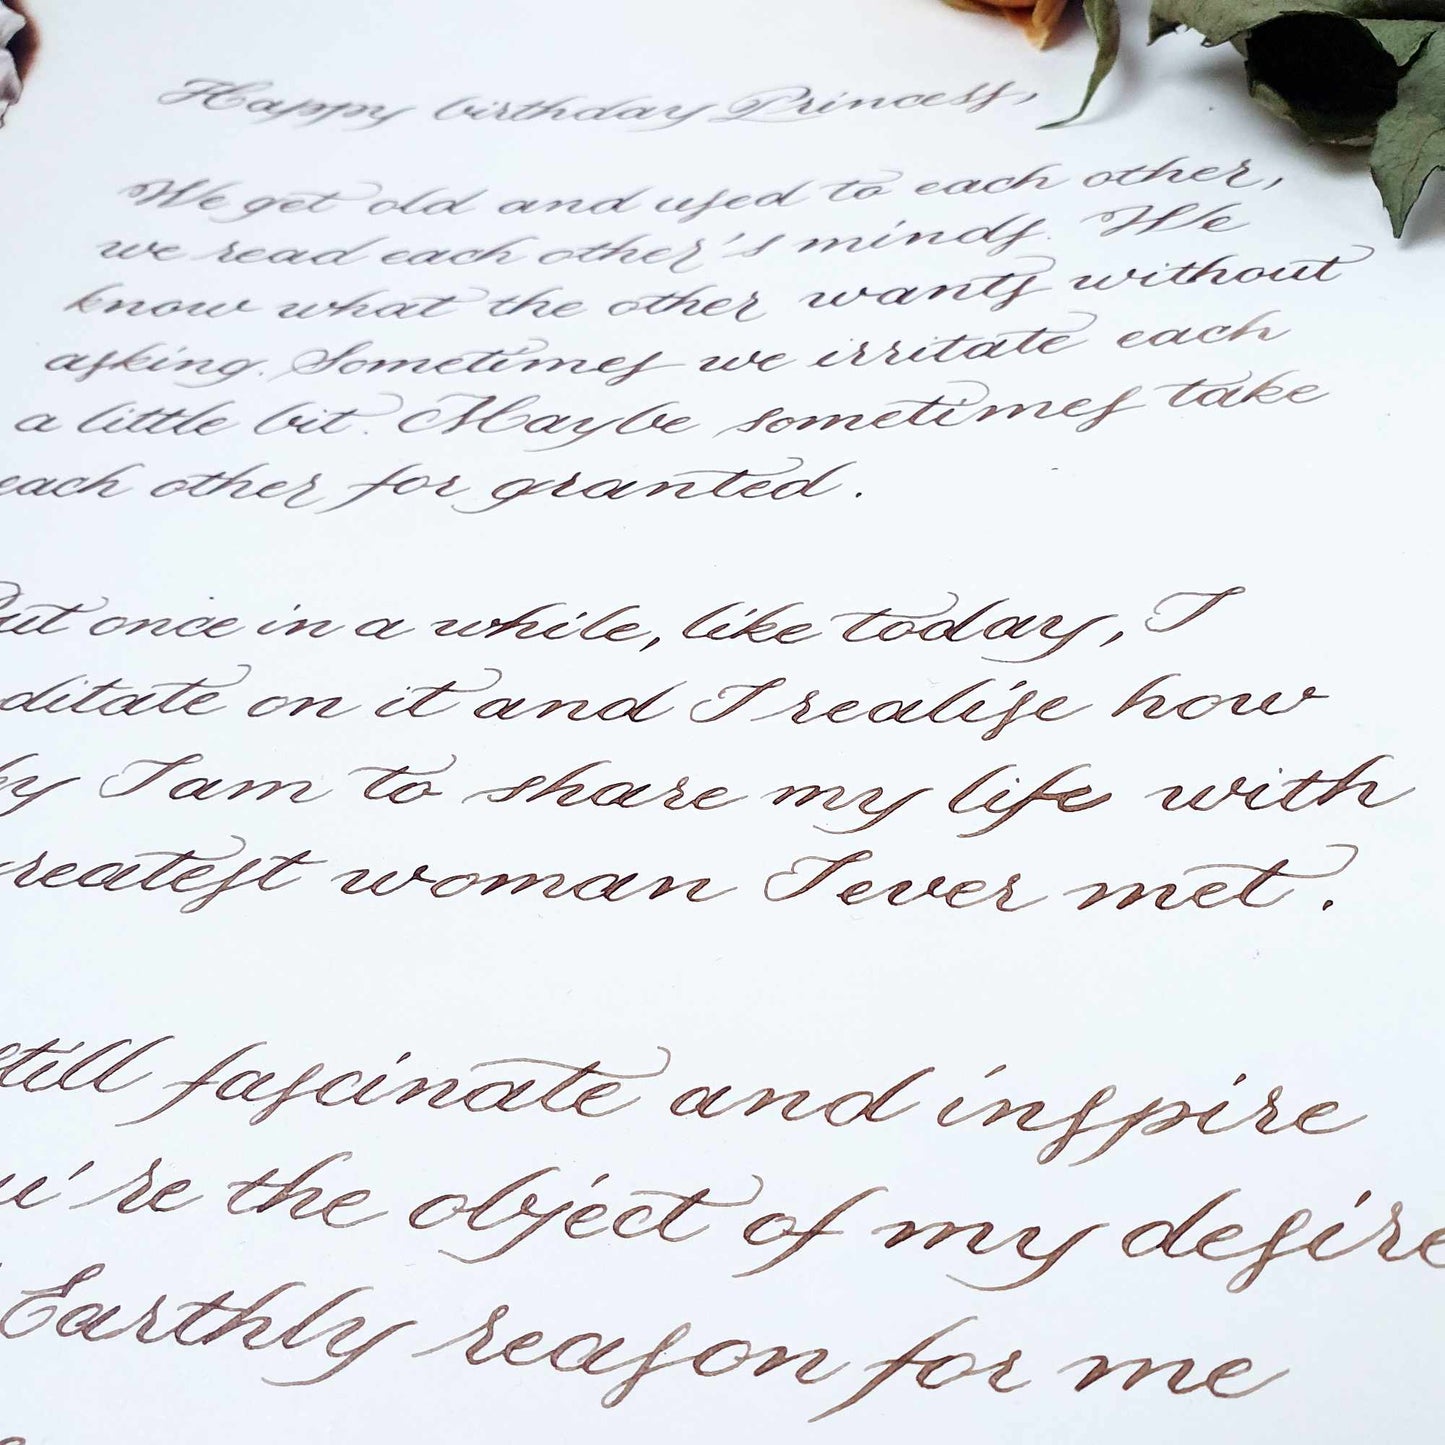 Happy birthday Princess,
We get old and used to each other,
we read each other's minds. We
know what the other wants without
asking. Sometimes we irritate each
a little bit. Maybe sometimes take
each other for granted.
But once in a while, like today, I
ditate on it and I realise how
ky I am to share my life with
reatest woman I ever met.
still fascinate and inspire
u're the object of my desire
Earthly reason for me